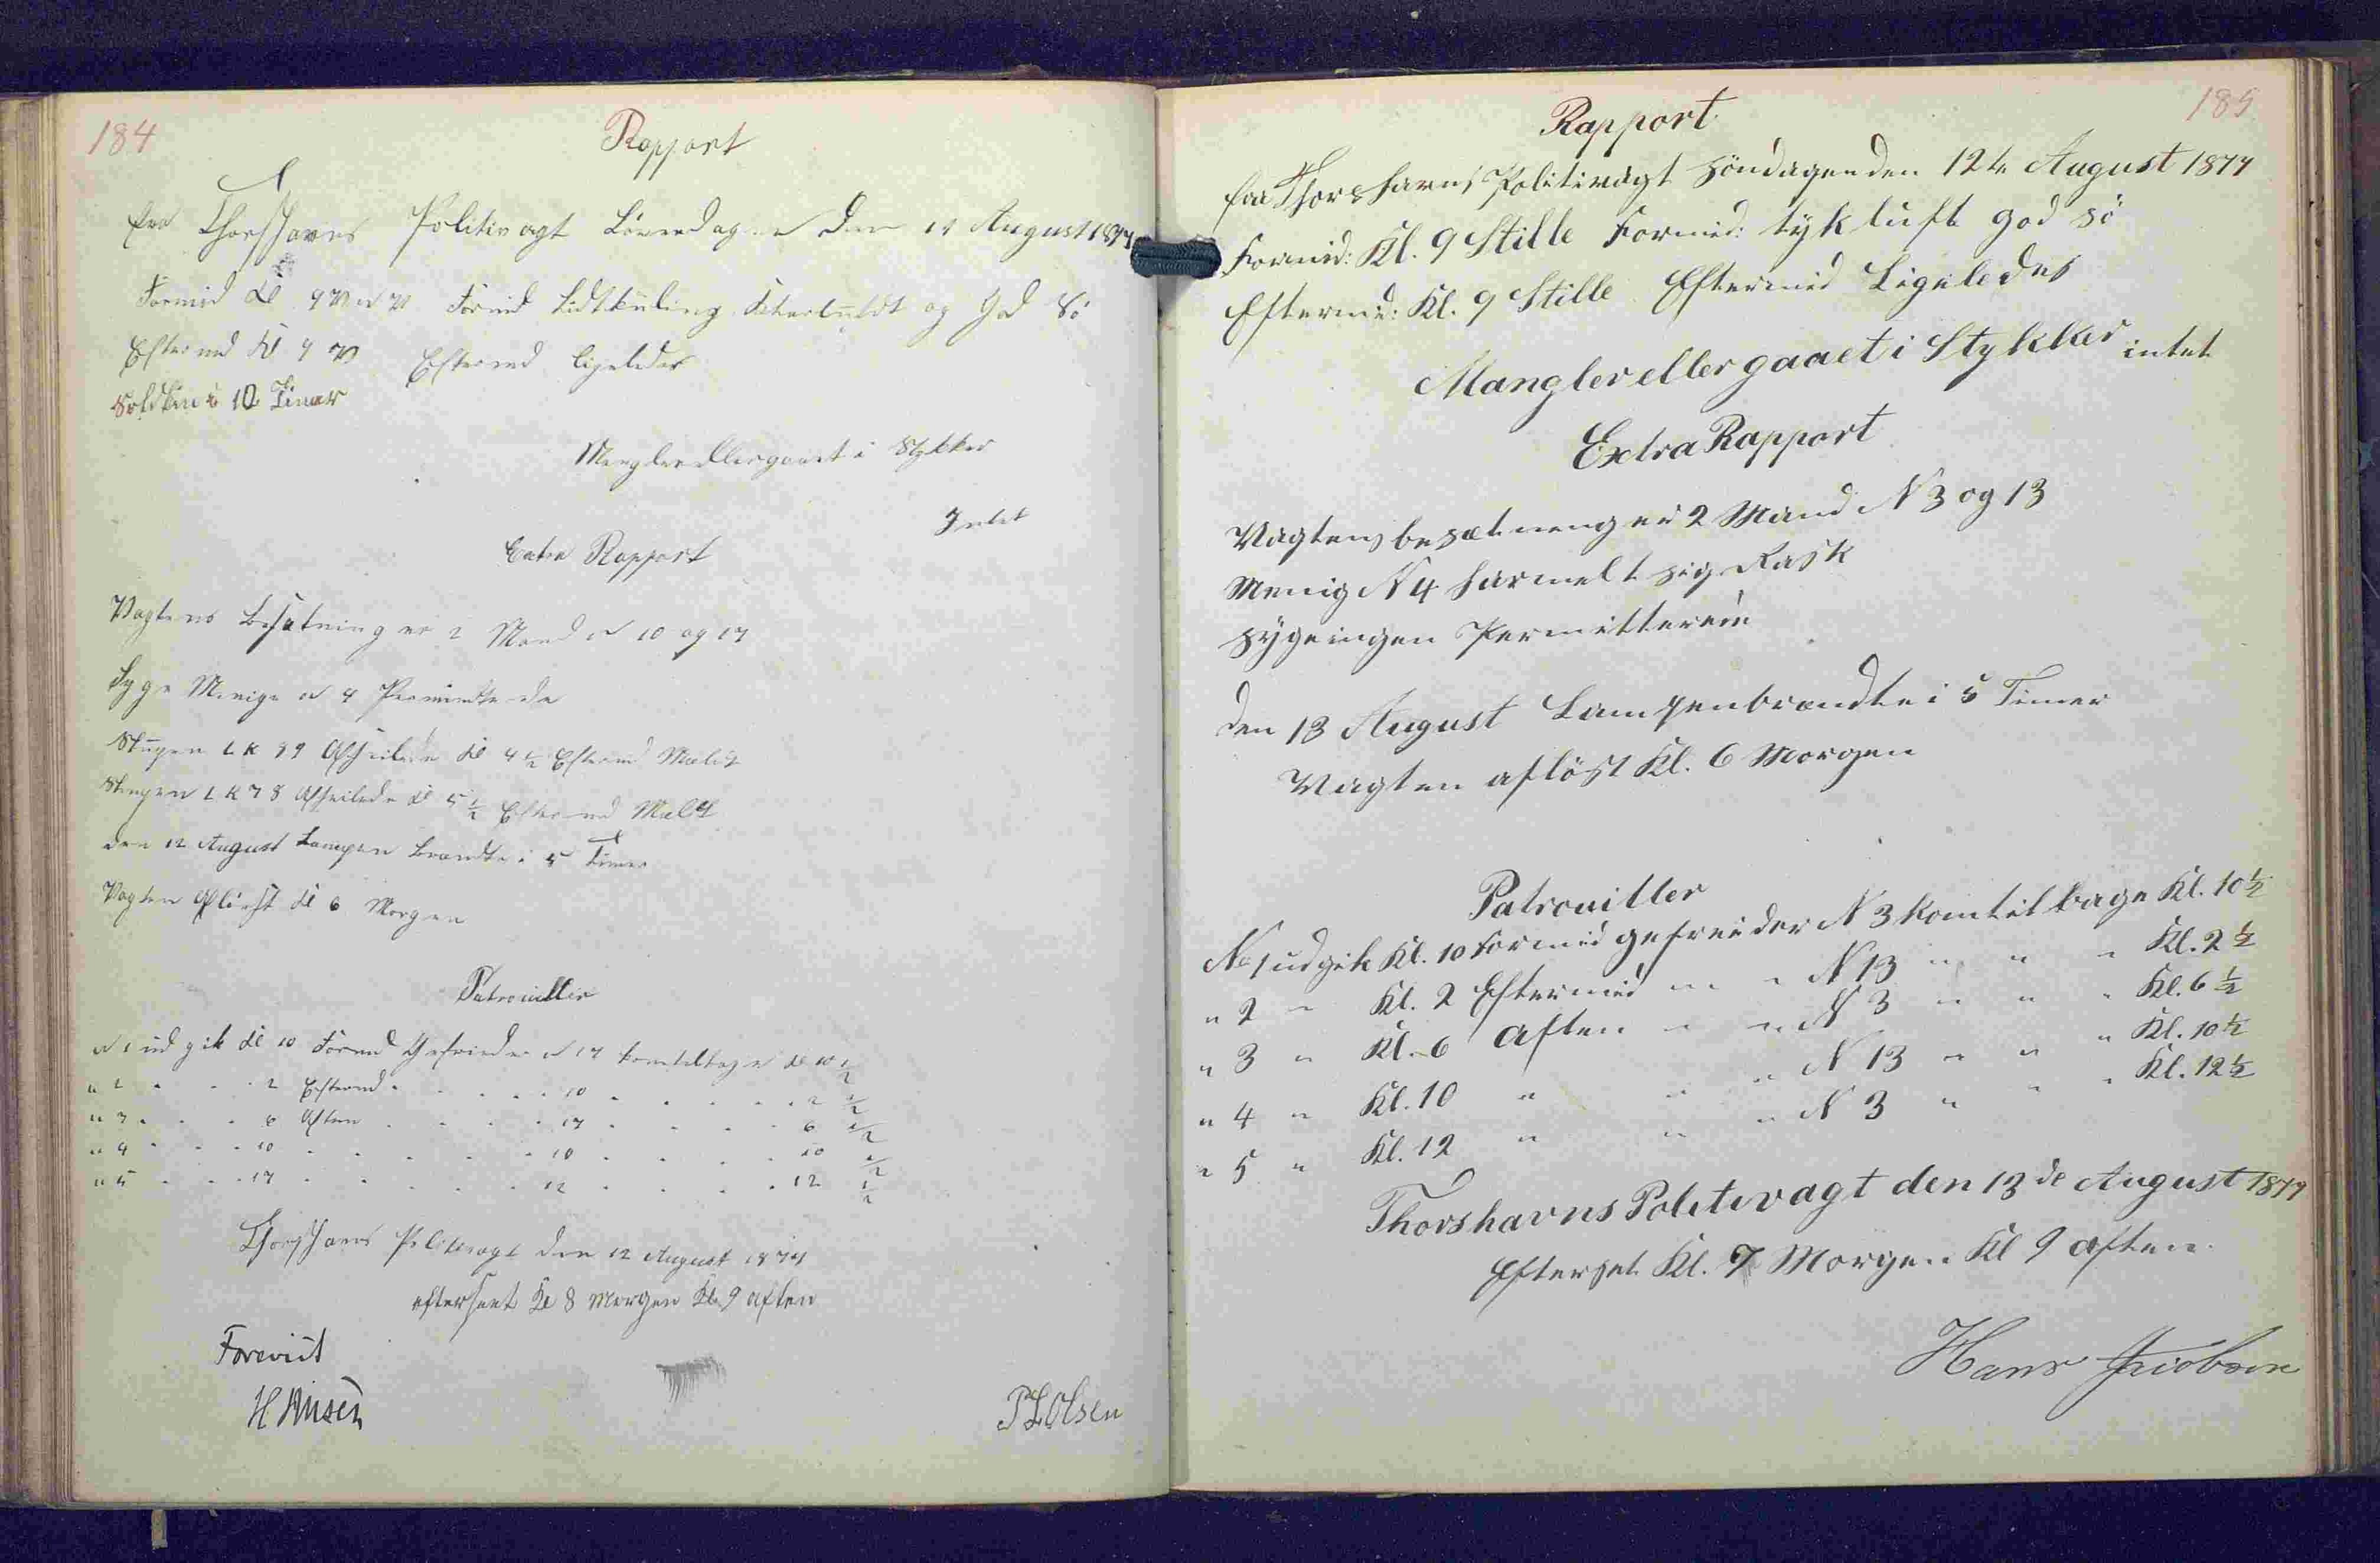 184
Rapport
fra Thorshavns Politivagt Løverdagen den 11 August 1877
Formid Kl 9 V Formid Lidt Kuling Skarluft og God Sö
Eftermid Kl 9 V Eftermid ligeledes
10 Timer
Mangler eller gaaet i Stykker
Intet
Extra Rapport
Vagtens Besætning er 2 Mand N 10 og 17
Syge Menige N 4 Permitterede
Sluppen L K 39 Afseilede Kl 4 1/2 Eftermid
Sluppen L K 78 Afseilede Kl 5 1/2 Eftermid
den 12 August Lampen Brændte i 5 Timer
Vagten Afløst Kl 6 Morgen
Patrouiller
N 1 udgik Kl 10 Formid Gefreider N 17 kom tilbage Kl 10 1/2
" 2 " " 2 Eftermid " " " 10 " " " 2 1/2
" 3 " " 6 Aften " " " 17 " " " 6 1/2
" 4 " " 10 " " " " 10 " " " 10 1/2
" 5 " " 17 " " " " 12 " " " 12 1/2
Thorshavns Politivagt den 12 August 1877
efterseet Kl 8 Morgen Kl 9 aften
Foreviist
H
P Olsen
185
Rapport
fra Thorshavns Politivagt Söndagen den 12te August 1877
Formid: Kl. 9 Stille Formid: tyk luft god sö
Eftermid: Kl. 9 Stille Eftermid Ligeledes
Mangler eller gaaet i Stykker intet
Extra Rapport
Vagtens besætneng er 2 Mand N 3 og 13
Menig N 4 har melt sig Rask
syge ingen Permitterede
den 13 August Lampen brændte i 5 Timer
Vagten aflöst Kl. 6 Morgen
Patrouiller
No 1 udgik Kl. 10 Formid gefreider N 3 kom tilbage Kl. 10 1/2
" 2 " Kl. 2 Eftermid " " N 13 " " " Kl. 2 1/2
" 3 " Kl. 6 Aften " " N 3 " " " Kl. 6 1/2
" 4 " Kl. 10 " " " N 13 " " " Kl. 10 1/2
" 5 " Kl. 12 " " " N 3 " " " Kl. 12 1/2
Thorshavns Politivagt den 13de August 1877
Efterset Kl. 7 Morgen Kl 9 aften.
Hans Jacobsen